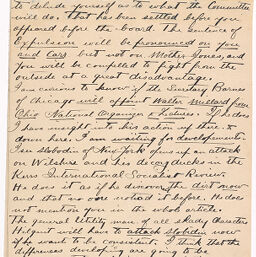 to delude yourself as to what the Committee
will do. That has been settled before you
appeared before the board. The sentence of
Expulsion will be pronounced on you
and Carl but not on Mother Jones, and
you will be compelled to fight from the
outside at a great disadvantage.
I am curious to know if the Secretary Barnes
of Chicago will appoint Walter Millard from
Ohio National Organizer & Lecturer. If he does
I have insight into his action up there to
down here. I am waiting for developements.
Slobodin of New York opens up an attack
on Wilshire and his decoy ducks in the
Kerr's International Socialist Review
He does it as if he discovered the dirt now
and that no one noticed it before. He does
not mention you in the whole article.
The general Utility man of all shady characters
Hilquit will have to attack Slobodin now
if he want to be consistent. I think that the
differences developing are going to be